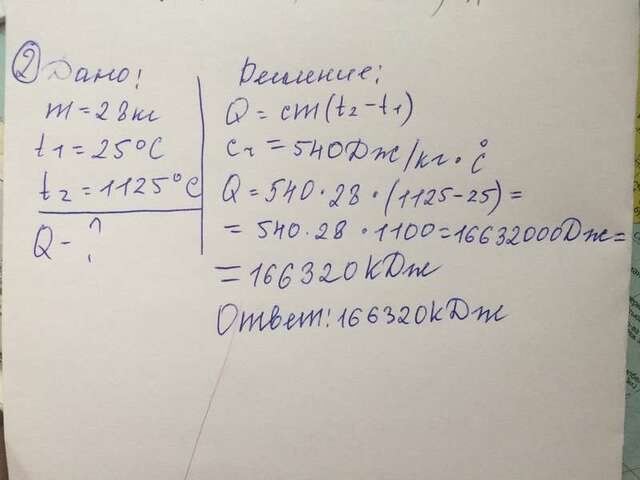 ② Дано:
m = 28кг
t1 = 25°C
t2 = 1125°C
Q - ?
Решение:
Q = cm(t2-t1)
c1 = 540Дж/кг·°C
Q = 540·28·(1125-25) =
= 540·28·1100=16632000Дж=
=166320кДж
Ответ: 166320кДж